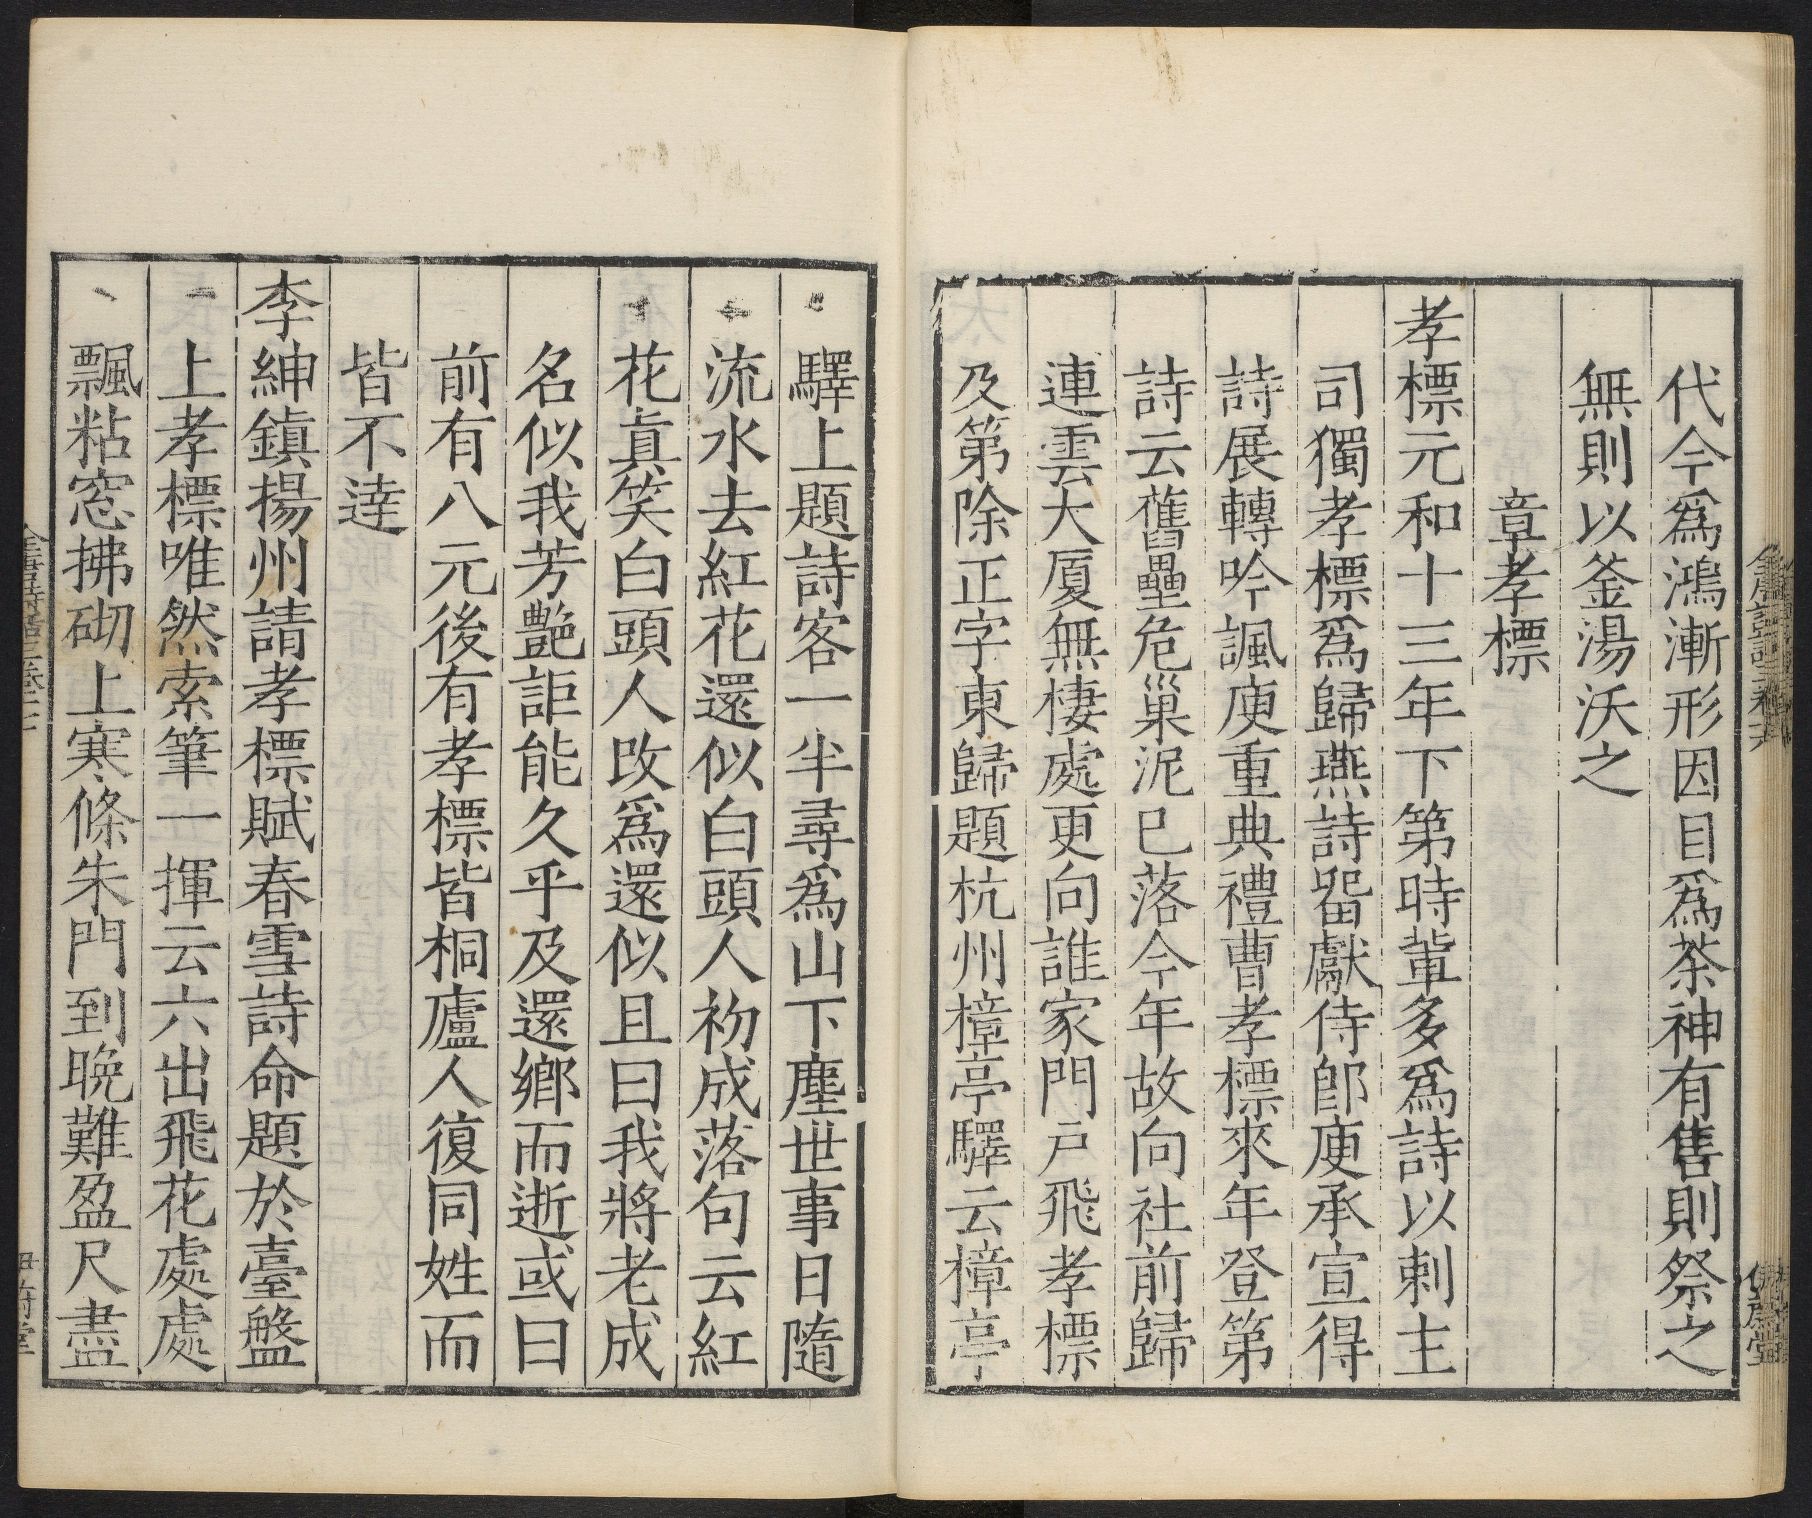 代今爲鴻漸形因目爲茶神有售則祭之
無則以釜湯沃之
章孝標
孝標元和十三年下第時輩多爲詩以刺主
司獨孝標爲歸燕詩畱獻侍郎庾承宣得
詩展轉吟諷庾重典禮曹孝標來年登第
詩云舊壘危巢泥已落今年故向社前歸
連雲大厦無棲處更向誰家門戸飛孝標
及第除正字東歸題杭州樟亭驛云樟亭
驛上題詩客一半尋爲山下塵世事日隨
流水去紅花還似白頭人初成落句云紅
花眞笑白頭人改爲還似且曰我將老成
名似我芳艷詎能久乎及還鄉而逝或曰
前有八元後有孝標皆桐廬人復同姓而
皆不逹
李紳鎮揚州請孝標賦春雪詩命題於臺盤
上孝標唯然索筆一揮云六出飛花處處
飄粘窓拂砌上寒條朱門到晩難盈尺盡